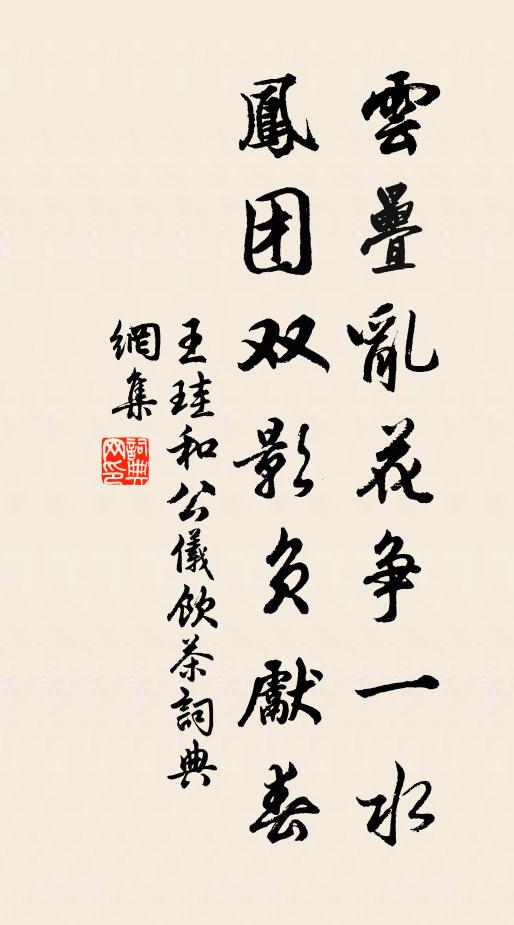 雲疊亂花争一水
鳳团双影负獻春
王珪和公儀飲茶詞典
網集
詞典網印